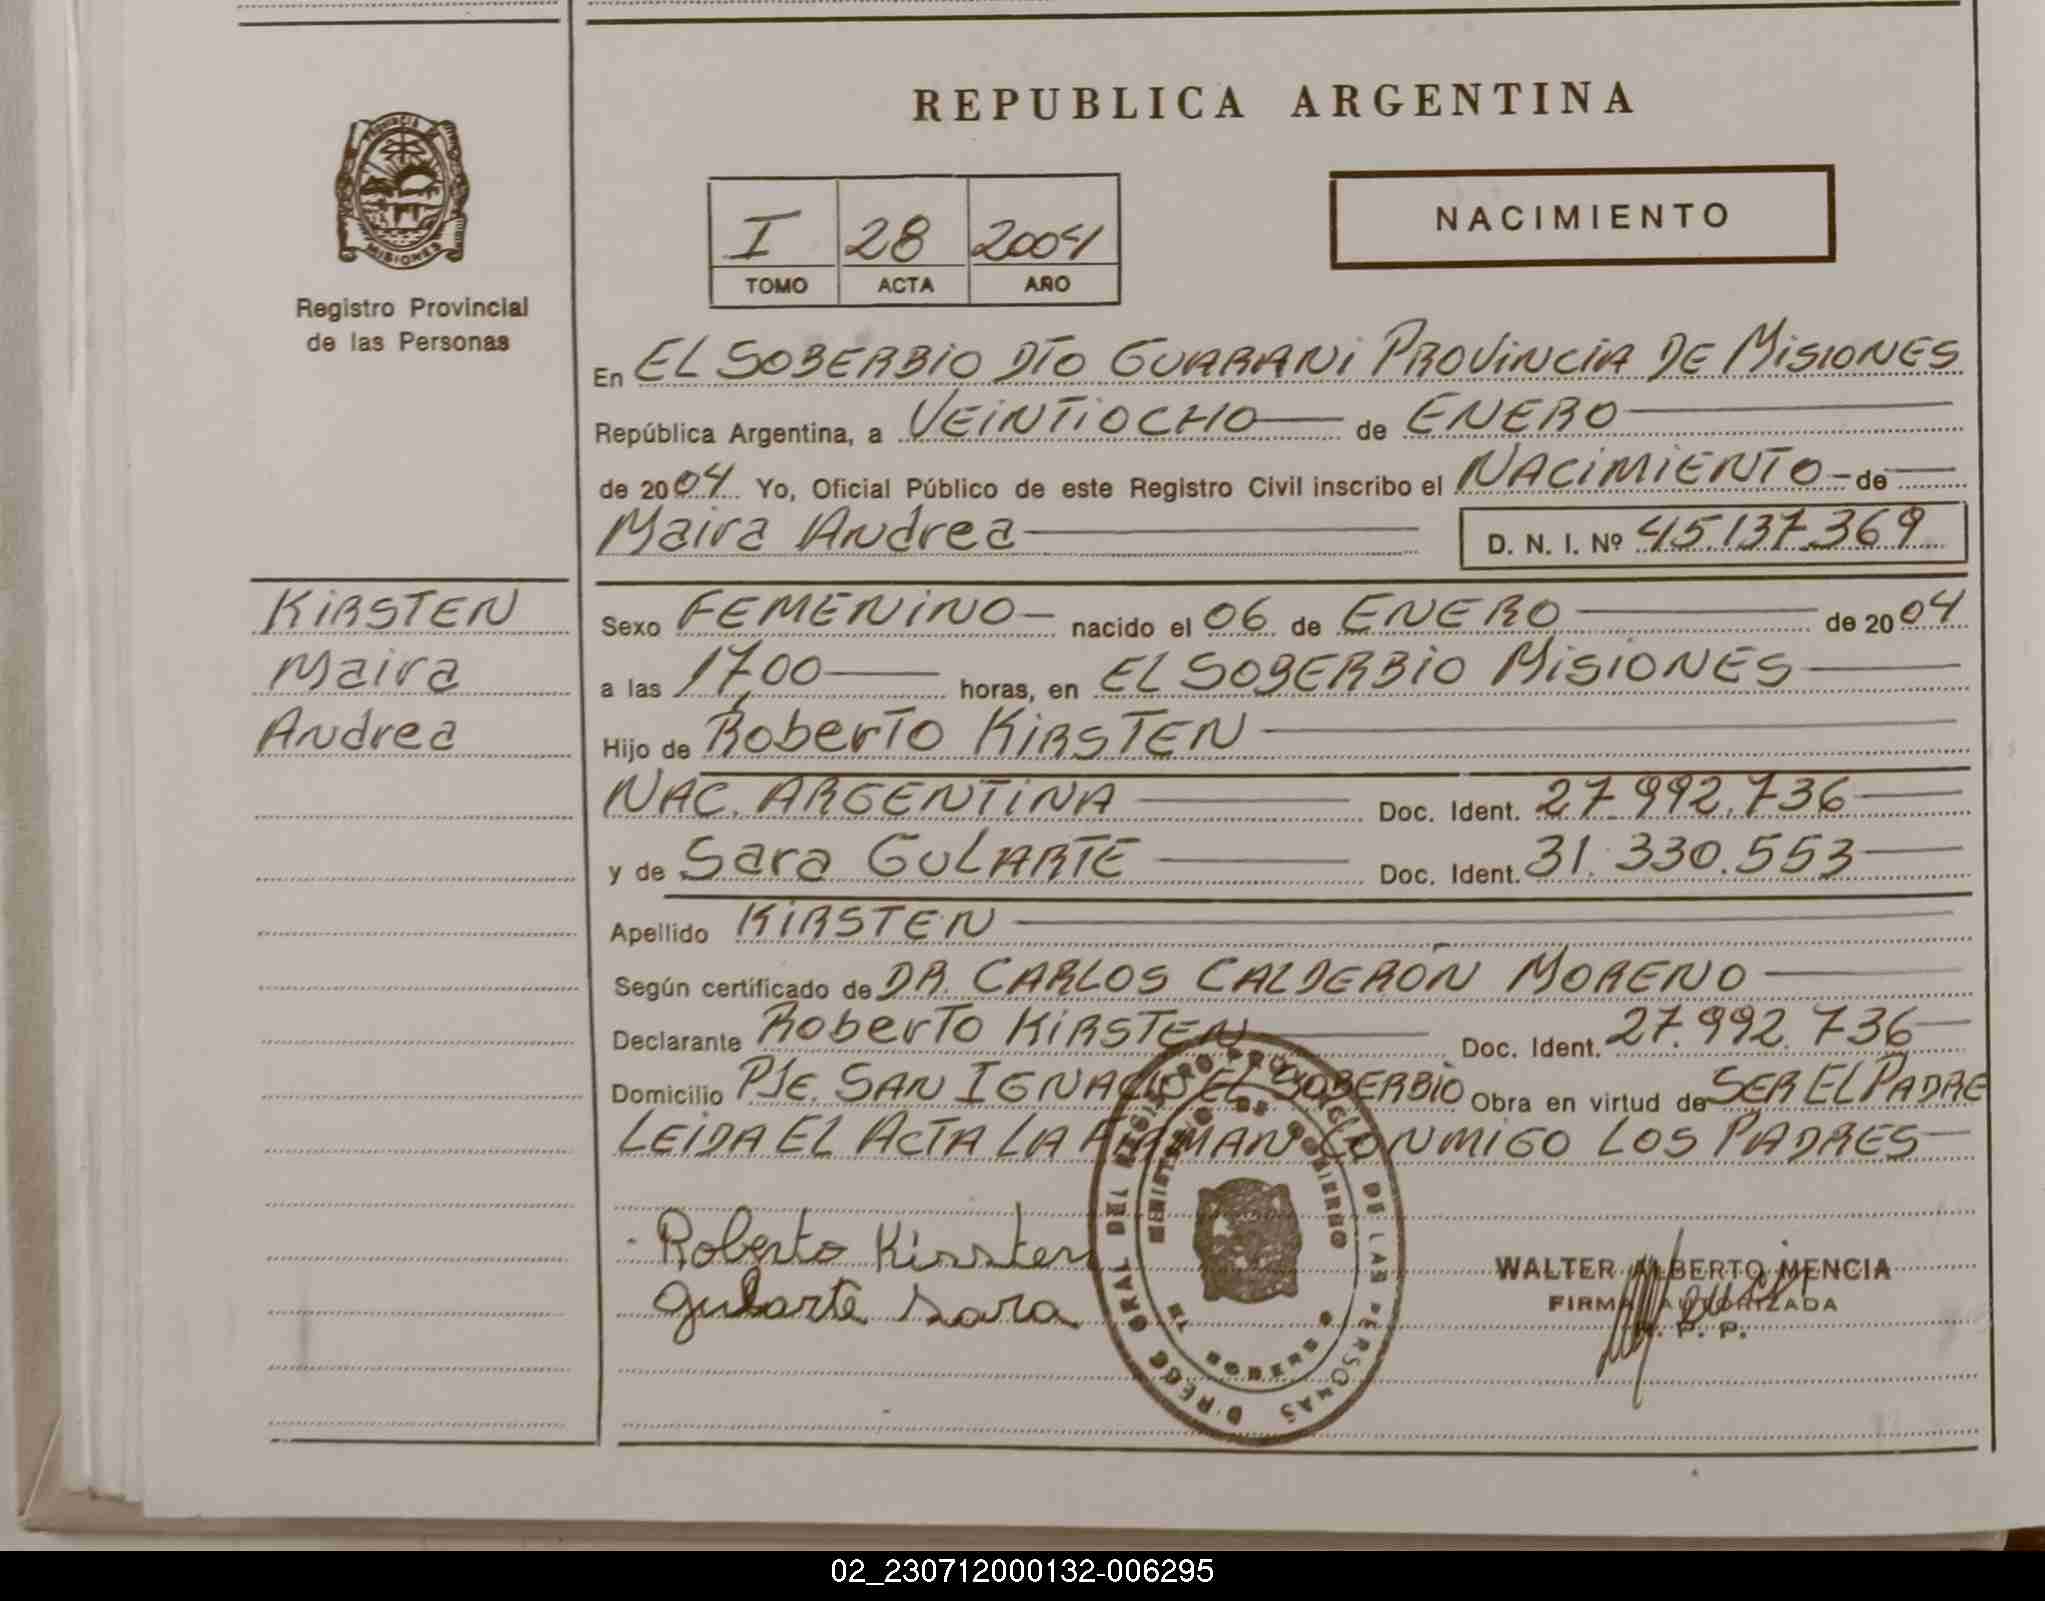 REPUBLICA ARGENTINA
PROVINCIA DE
MISIONES
Registro Provincial
de las Personas
I 28 2004
TOMO ACTA AÑO
NACIMIENTO
En EL SOBERBIO DTO GUARANI PROVINCIA DE MISIONES
República Argentina, a VEINTIOCHO de ENERO
de 2004 Yo, Oficial Público de este Registro Civil inscribo el NACIMIENTO de
Maira Andrea D. N. I. Nº 45.137.369
KIRSTEN
Maira
Andrea
Sexo FEMENINO nacido el 06 de ENERO de 2004
a las 17,00 horas, en EL SOBERBIO MISIONES
Hijo de Roberto KIRSTEN
NAC. ARGENTINA Doc. Ident. 27.992.736
y de Sara GULARTE Doc. Ident. 31.330.553
Apellido KIRSTEN
Según certificado de DR. CARLOS CALDERON MORENO
Declarante Roberto KIRSTEN Doc. Ident. 27.992.736
Domicilio PJE. SAN IGNACIO EL SOBERBIO Obra en virtud de SER EL PADRE
LEIDA EL ACTA LA FIRMAN CONMIGO LOS PADRES
Roberto Kirsten
Gularte Sara
GRAL DEL REGISTRO PROVINCIAL DE LAS PERSONAS
MINISTERIO DE GOBIERNO
WALTER ALBERTO MENCIA
FIRMA AUTORIZADA
R. P. P.
02_230712000132-006295